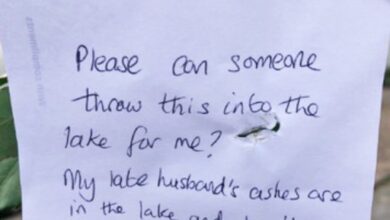 Please can someone
throw this into the
lake for me?
My late husband's ashes are
in the lake and